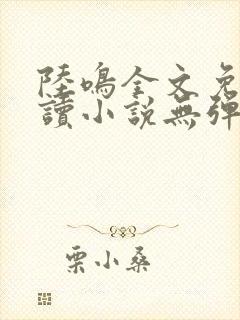 陸鳴全文免
讀小說無彈
栗小桑